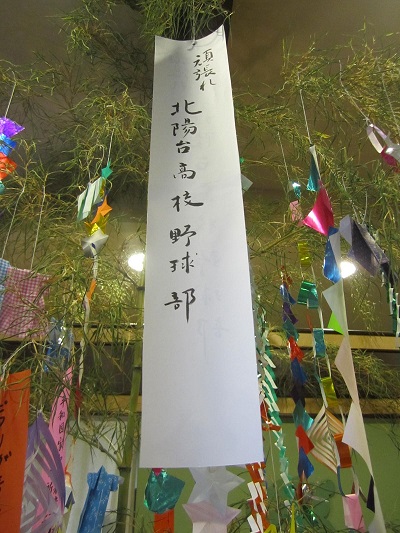 頑張れ
北陽台高校野球部